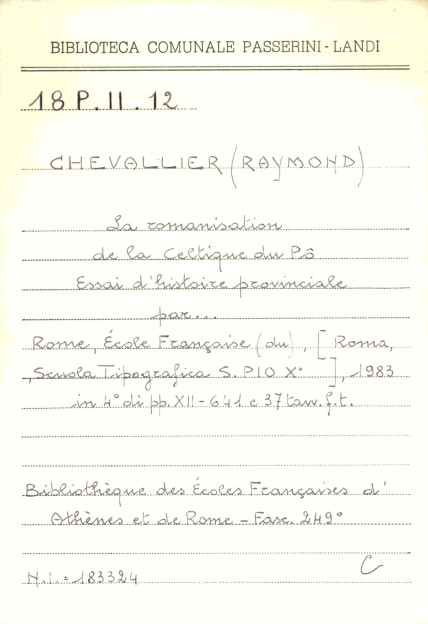 BIBLIOTECA COMUNALE PASSERINI-LANDI
18 P.II.12
CHEVALLIER (RAYMOND)
La romanisation
de la Celtique du Pô
Essai d'histoire provinciale
par...
Rome, École Française (du), [Roma,
Scuola Tipografica S. PIO X°], 1983
in 4° di pp. XII-641 e 37 tav. f.t.
Bibliothèque des Écoles Françaises d'
Athènes et de Rome - Fasc. 249°
C
N.i.=183324